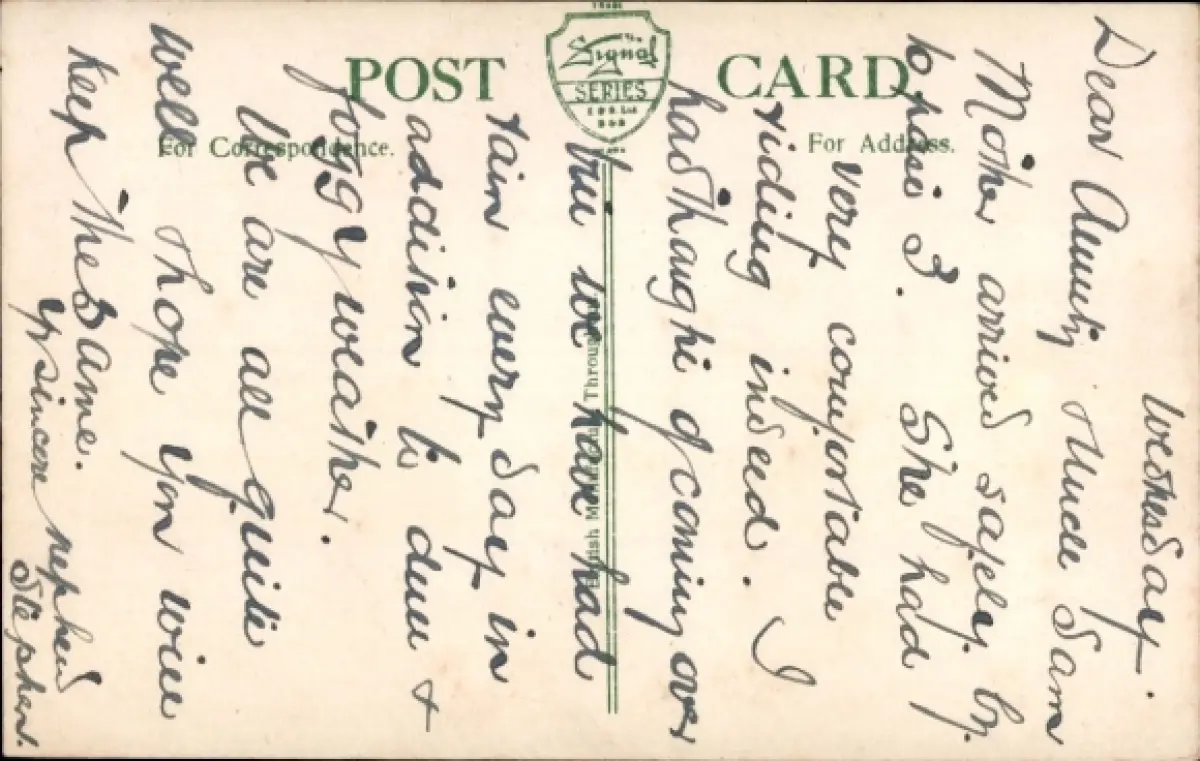 POST CARD
TRADE
The
Signal
SERIES
For Correspondence.
For Address.
Wednesday.
Dear Aunty & Uncle Sam
Mother arrived safely by
6 past 3. She had
very comfortable
riding indeed. I
had thought of coming over
but we have had
rain every day in
addition to dull +
foggy weather.
We are all quite
well & hope you will
keep the same.
Yr sincere nephew
Stephen.